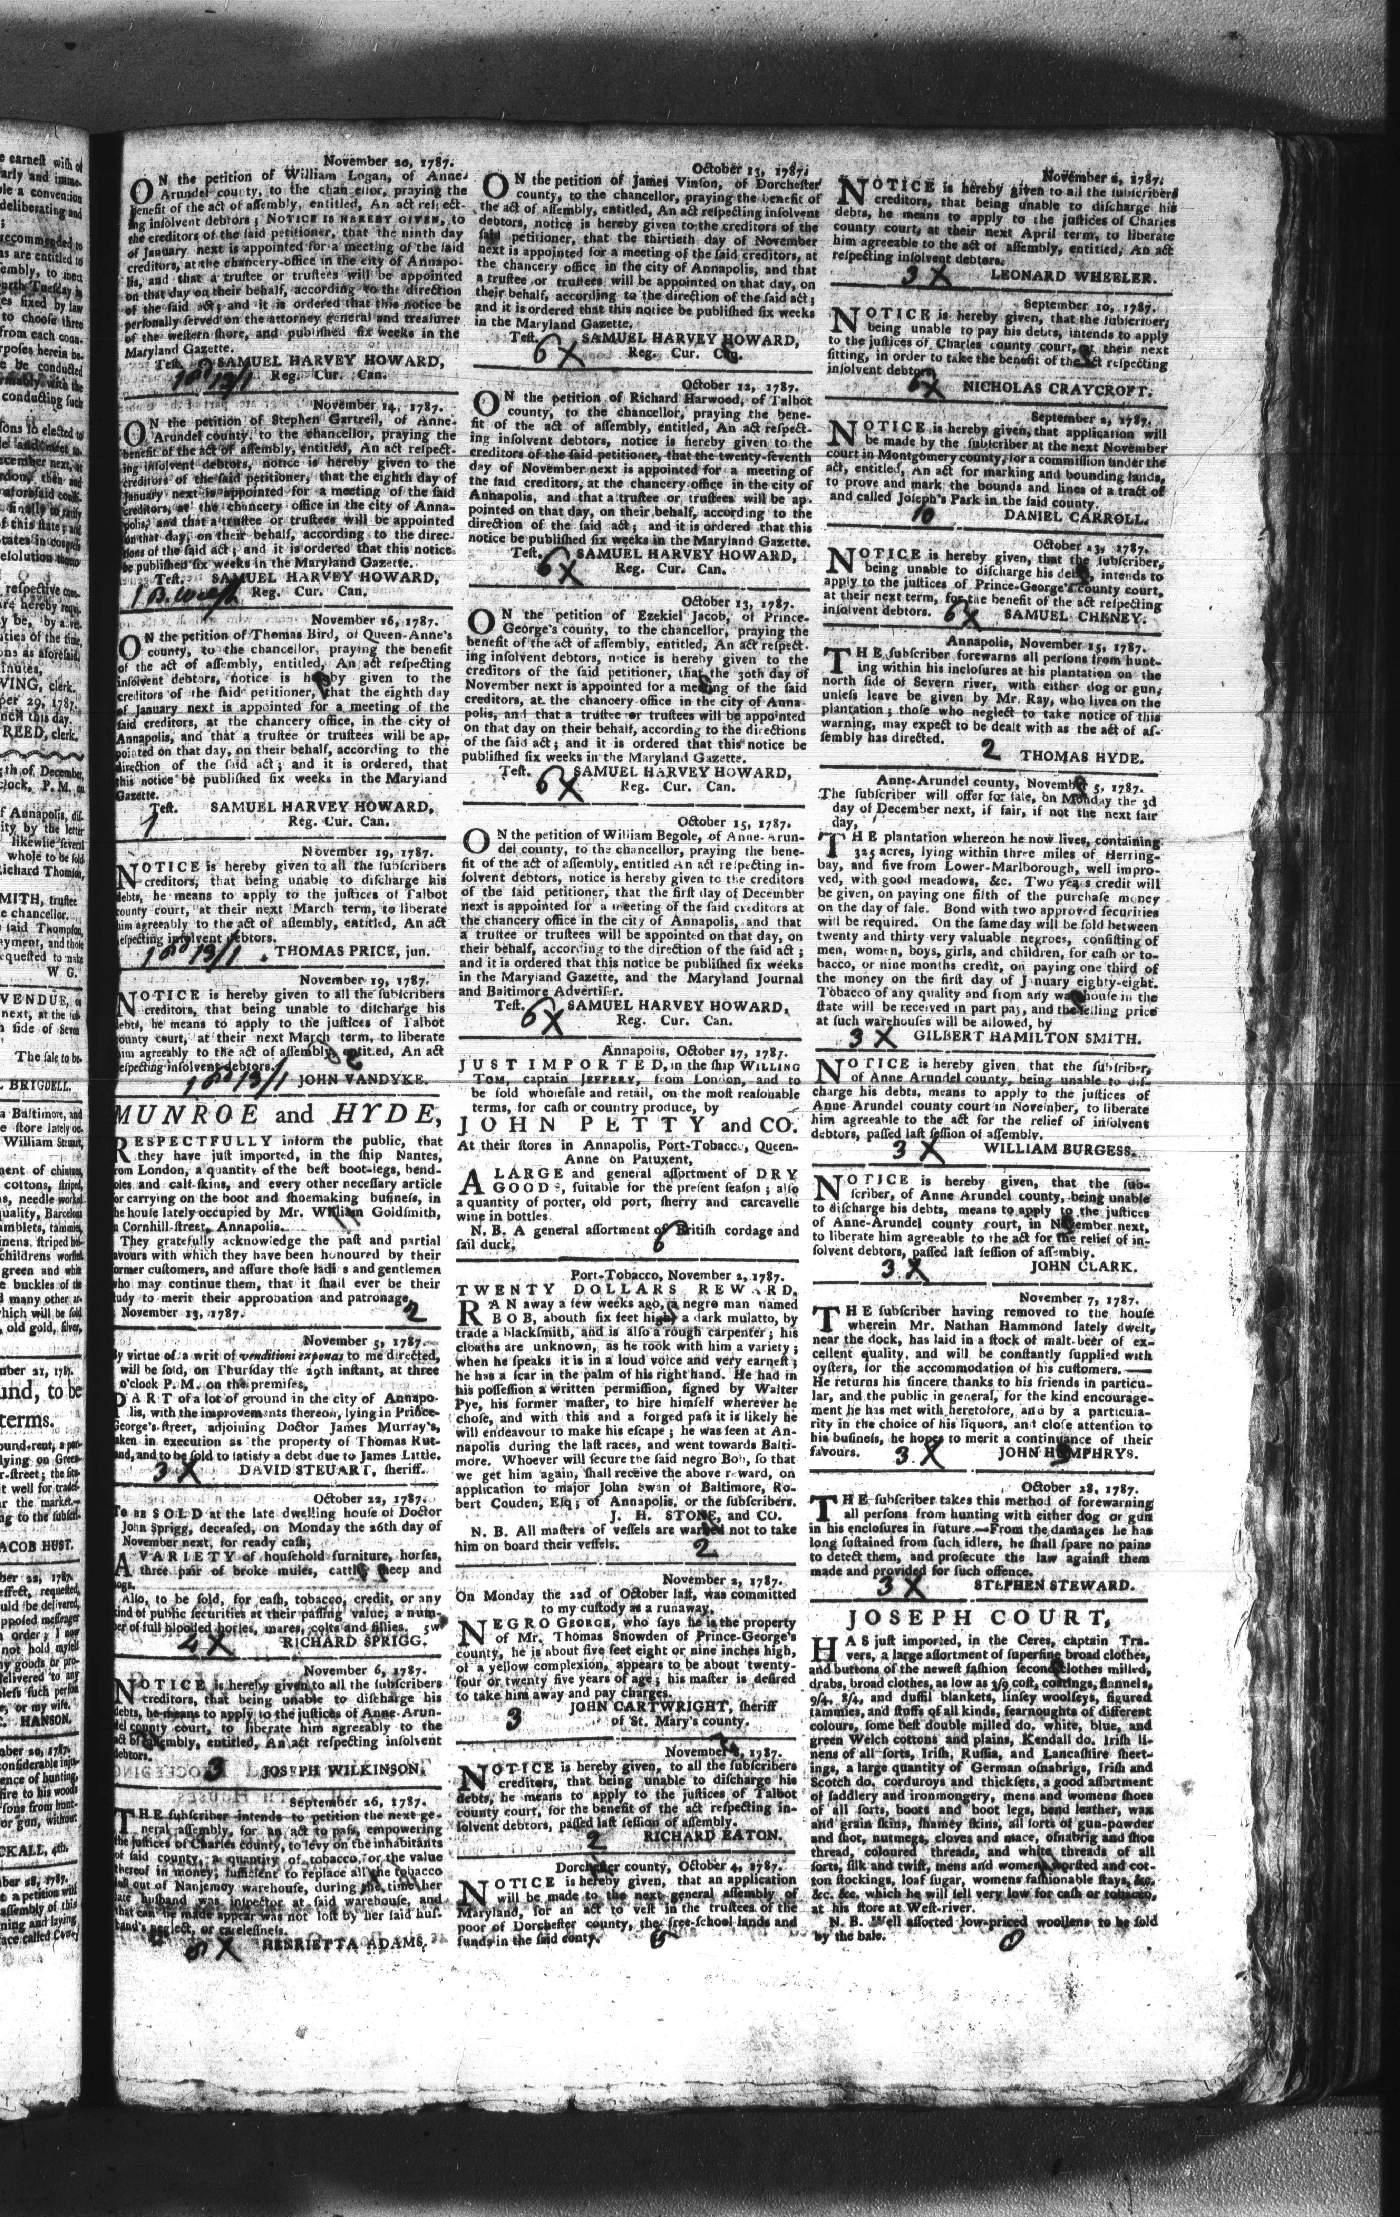 November 20, 1787.
ON the petition of William Logan, of Anne-
Arundel county, to the chancellor, praying the
benefit of the act of assembly, entitled, An act respect-
ing insolvent debtors; NOTICE IS HEREBY GIVEN, to
the creditors of the said petitioner, that the ninth day
of January next is appointed for a meeting of the said
creditors, at the chancery-office in the city of Annapo-
lis, and that a trustee or trustees will be appointed
on that day on their behalf, according to the direction
of the said act; and it is ordered that this notice be
personally served on the attorney general and treasurer
of the western shore, and published six weeks in the
Maryland Gazette.
Test. SAMUEL HARVEY HOWARD,
Reg. Cur. Can.
November 14, 1787.
ON the petition of Stephen Gartrell, of Anne-
Arundel county, to the chancellor, praying the
benefit of the act of assembly, entitled, An act respect-
ing insolvent debtors, notice is hereby given to the
creditors of the said petitioner, that the eighth day of
January next is appointed for a meeting of the said
creditors, at the chancery office in the city of Anna-
polis, and that a trustee or trustees will be appointed
on that day, on their behalf, according to the direc-
tions of the said act; and it is ordered that this notice
be published six weeks in the Maryland Gazette.
Test. SAMUEL HARVEY HOWARD,
Reg. Cur. Can.
November 16, 1787.
ON the petition of Thomas Bird, of Queen-Anne's
county, to the chancellor, praying the benefit
of the act of assembly, entitled, An act respecting
insolvent debtors, notice is hereby given to the
creditors of the said petitioner, that the eighth day
of January next is appointed for a meeting of the
said creditors, at the chancery office, in the city of
Annapolis, and that a trustee or trustees will be ap-
pointed on that day, on their behalf, according to the
direction of the said act; and it is ordered, that
this notice be published six weeks in the Maryland
Gazette.
Test. SAMUEL HARVEY HOWARD,
1 Reg. Cur. Can.
November 19, 1787.
NOTICE is hereby given to all the subscribers
creditors, that being unable to discharge his
debts, he means to apply to the justices of Talbot
county court, at their next March term, to liberate
him agreeably to the act of assembly, entitled, An act
respecting insolvent debtors.
THOMAS PRICE, jun.
November 19, 1787.
NOTICE is hereby given to all the subscribers
creditors, that being unable to discharge his
debts, he means to apply to the justices of Talbot
county court, at their next March term, to liberate
him agreeably to the act of assembly, entitled, An act
respecting insolvent debtors.
JOHN VANDYKE.
MUNROE and HYDE,
RESPECTFULLY inform the public, that
they have just imported, in the ship Nantes,
from London, a quantity of the best boot-legs, bend-
soles and calf-skins, and every other necessary article
for carrying on the boot and shoemaking business, in
the house lately occupied by Mr. William Goldsmith,
in Cornhill-street, Annapolis.
They gratefully acknowledge the past and partial
favours with which they have been honoured by their
former customers, and assure those ladies and gentlemen
who may continue them, that it shall ever be their
study to merit their approbation and patronage.
November 13, 1787. 2
November 5, 1787.
By virtue of a writ of venditioni exponas to me directed,
will be sold, on Thursday the 29th instant, at three
o'clock P. M. on the premises,
PART of a lot of ground in the city of Annapo-
lis, with the improvements thereon, lying in Prince-
George's street, adjoining Doctor James Murray's,
taken in execution as the property of Thomas Rut-
land, and to be sold to satisfy a debt due to James Little.
3 X DAVID STEUART, sheriff.
October 22, 1787.
To BE SOLD at the late dwelling house of Doctor
John Sprigg, deceased, on Monday the 26th day of
November next, for ready cash,
A VARIETY of household furniture, horses,
three pair of broke mules, cattle, sheep and
hogs.
Also, to be sold, for cash, tobacco, credit, or any
kind of public securities at their passing value, a num-
ber of full blooded horses, mares, colts and fillies. 5w
4 X RICHARD SPRIGG.
November 6, 1787.
NOTICE is hereby given to all the subscribers
creditors, that being unable to discharge his
debts, he means to apply to the justices of Anne-Arun-
del county court, to liberate him agreeably to the
act of assembly, entitled, An act respecting insolvent
debtors.
3 JOSEPH WILKINSON.
September 26, 1787.
THE subscriber intends to petition the next ge-
neral assembly, for an act to pass, empowering
the justices of Charles county, to levy on the inhabitants
of said county, a quantity of tobacco, or the value
thereof in money, sufficient to replace all the tobacco
lost out of Nanjemoy warehouse, during the time her
late husband was inspector at said warehouse, and
that can be made appear was not lost by her said hus-
band's neglect, or carelessness.
8 X HENRIETTA ADAMS.
October 15, 1787.
ON the petition of James Vinson, of Dorchester
county, to the chancellor, praying the benefit of
the act of assembly, entitled, An act respecting insolvent
debtors, notice is hereby given to the creditors of the
said petitioner, that the thirtieth day of November
next is appointed for a meeting of the said creditors, at
the chancery office in the city of Annapolis, and that
a trustee or trustees will be appointed on that day, on
their behalf, according to the direction of the said act;
and it is ordered that this notice be published six weeks
in the Maryland Gazette.
Test. SAMUEL HARVEY HOWARD,
6 X Reg. Cur. Can.
October 12, 1787.
ON the petition of Richard Harwood, of Talbot
county, to the chancellor, praying the bene-
fit of the act of assembly, entitled, An act respect-
ing insolvent debtors, notice is hereby given to the
creditors of the said petitioner, that the twenty-seventh
day of November next is appointed for a meeting of
the said creditors, at the chancery office in the city of
Annapolis, and that a trustee or trustees will be ap-
pointed on that day, on their behalf, according to the
direction of the said act; and it is ordered that this
notice be published six weeks in the Maryland Gazette.
Test. SAMUEL HARVEY HOWARD,
6 X Reg. Cur. Can.
October 13, 1787.
ON the petition of Ezekiel Jacob, of Prince-
George's county, to the chancellor, praying the
benefit of the act of assembly, entitled, An act respect-
ing insolvent debtors, notice is hereby given to the
creditors of the said petitioner, that the 30th day of
November next is appointed for a meeting of the said
creditors, at the chancery office in the city of Anna-
polis, and that a trustee or trustees will be appointed
on that day on their behalf, according to the directions
of the said act; and it is ordered that this notice be
published six weeks in the Maryland Gazette.
Test. SAMUEL HARVEY HOWARD,
6 X Reg. Cur. Can.
October 15, 1787.
ON the petition of William Begole, of Anne-Arun-
del county, to the chancellor, praying the bene-
fit of the act of assembly, entitled An act respecting in-
solvent debtors, notice is hereby given to the creditors
of the said petitioner, that the first day of December
next is appointed for a meeting of the said creditors at
the chancery office in the city of Annapolis, and that
a trustee or trustees will be appointed on that day, on
their behalf, according to the direction of the said act;
and it is ordered that this notice be published six weeks
in the Maryland Gazette, and the Maryland Journal
and Baltimore Advertiser.
Test. SAMUEL HARVEY HOWARD,
6 X Reg. Cur. Can.
Annapolis, October 17, 1787.
JUST IMPORTED, in the ship WILLING
TOM, captain JEFFERY, from London, and to
be sold wholesale and retail, on the most reasonable
terms, for cash or country produce, by
JOHN PETTY and CO.
At their stores in Annapolis, Port-Tobacco, Queen-
Anne on Patuxent,
A LARGE and general assortment of DRY
GOODS, suitable for the present season; also
a quantity of porter, old port, sherry and carcavelle
wine in bottles.
N. B. A general assortment of British cordage and
sail duck. 6
Port-Tobacco, November 2, 1787.
TWENTY DOLLARS REWARD.
RAN away a few weeks ago, a negro man named
BOB, abouth six feet high, a dark mulatto, by
trade a blacksmith, and is also a rough carpenter; his
cloaths are unknown, as he took with him a variety;
when he speaks it is in a loud voice and very earnest;
he has a scar in the palm of his right hand. He had in
his possession a written permission, signed by Walter
Pye, his former master, to hire himself wherever he
chose, and with this and a forged pass it is likely he
will endeavour to make his escape; he was seen at An-
napolis during the last races, and went towards Balti-
more. Whoever will secure the said negro Bob, so that
we get him again, shall receive the above reward, on
application to major John Swan of Baltimore, Ro-
bert Couden, Esq; of Annapolis, or the subscribers.
J. H. STONE, and CO.
N. B. All masters of vessels are warned not to take
him on board their vessels. 2
November 2, 1787.
On Monday the 22d of October last, was committed
to my custody as a runaway,
NEGRO GEORGE, who says he is the property
of Mr. Thomas Snowden of Prince-George's
county, he is about five feet eight or nine inches high,
of a yellow complexion, appears to be about twenty-
four or twenty five years of age; his master is desired
to take him away and pay charges.
JOHN CARTWRIGHT, sheriff
3 of St. Mary's county.
November 8, 1787.
NOTICE is hereby given, to all the subscribers
creditors, that being unable to discharge his
debts, he means to apply to the justices of Talbot
county court, for the benefit of the act respecting in-
solvent debtors, passed last session of assembly.
2 RICHARD EATON.
Dorchester county, October 4, 1787.
NOTICE is hereby given, that an application
will be made to the next general assembly of
Maryland, for an act to vest in the trustees of the
poor of Dorchester county, the free-school lands and
funds in the said conty. 6
November 2, 1787.
NOTICE is hereby given to all the subscribers
creditors, that being unable to discharge his
debts, he means to apply to the justices of Charles
county court, at their next April term, to liberate
him agreeable to the act of assembly, entitled, An act
respecting insolvent debtors.
3 X LEONARD WHEELER.
September 10, 1787.
NOTICE is hereby given, that the subscriber,
being unable to pay his debts, intends to apply
to the justices of Charles county court, at their next
sitting, in order to take the benefit of the act respecting
insolvent debtors.
6 X NICHOLAS CRAYCROFT.
September 2, 1787.
NOTICE is hereby given, that application will
be made by the subscriber at the next November
court in Montgomery county, for a commission under the
act, entitled, An act for marking and bounding lands,
to prove and mark the bounds and lines of a tract of
and called Joseph's Park in the said county.
10 DANIEL CARROLL.
October 13, 1787.
NOTICE is hereby given, that the subscriber,
being unable to discharge his debts, intends to
apply to the justices of Prince-George's county court,
at their next term, for the benefit of the act respecting
insolvent debtors. 6 X SAMUEL CHENEY.
Annapolis, November 15, 1787.
THE subscriber forewarns all persons from hunt-
ing within his inclosures at his plantation on the
north side of Severn river, with either dog or gun,
unless leave be given by Mr. Ray, who lives on the
plantation; those who neglect to take notice of this
warning, may expect to be dealt with as the act of as-
sembly has directed.
2 THOMAS HYDE.
Anne-Arundel county, November 5, 1787.
The subscriber will offer for sale, on Monday the 3d
day of December next, if fair, if not the next fair
day,
THE plantation whereon he now lives, containing
325 acres, lying within three miles of Herring-
bay, and five from Lower-Marlborough, well impro-
ved, with good meadows, &c. Two years credit will
be given, on paying one fifth of the purchase money
on the day of sale. Bond with two approved securities
will be required. On the same day will be sold between
twenty and thirty very valuable negroes, consisting of
men, women, boys, girls, and children, for cash or to-
bacco, or nine months credit, on paying one third of
the money on the first day of January eighty-eight.
Tobacco of any quality and from any warehouse in the
state will be received in part pay, and the selling price
at such warehouses will be allowed, by
3 X GILBERT HAMILTON SMITH.
NOTICE is hereby given, that the subscriber,
of Anne Arundel county, being unable to dis-
charge his debts, means to apply to the justices of
Anne-Arundel county court in November, to liberate
him agreeable to the act for the relief of insolvent
debtors, passed last session of assembly.
3 X WILLIAM BURGESS.
NOTICE is hereby given, that the sub-
scriber, of Anne Arundel county, being unable
to discharge his debts, means to apply to the justices
of Anne-Arundel county court, in November next,
to liberate him agreeable to the act for the relief of in-
solvent debtors, passed last session of assembly.
3 X JOHN CLARK.
November 7, 1787.
THE subscriber having removed to the house
wherein Mr. Nathan Hammond lately dwelt,
near the dock, has laid in a stock of malt-beer of ex-
cellent quality, and will be constantly supplied with
oysters, for the accommodation of his customers.—
He returns his sincere thanks to his friends in particu-
lar, and the public in general, for the kind encourage-
ment he has met with heretofore, and by a particula-
rity in the choice of his liquors, and close attention to
his business, he hopes to merit a continuance of their
favours. 3 X JOHN HUMPHRYS.
October 28, 1787.
THE subscriber takes this method of forewarning
all persons from hunting with either dog or gun
in his enclosures in future.—From the damages he has
long sustained from such idlers, he shall spare no pains
to detect them, and prosecute the law against them
made and provided for such offence.
3 X STEPHEN STEWARD.
JOSEPH COURT,
HAS just imported, in the Ceres, captain Tra-
vers, a large assortment of superfine broad clothes,
and buttons of the newest fashion second clothes milled,
drabs, broad clothes, as low as 3/9 cost, coatings, flannels,
9/4, 8/4, and duffil blankets, linsey woolseys, figured
tammies, and stuffs of all kinds, fearnoughts of different
colours, some best double milled do. white, blue, and
green Welch cottons and plains, Kendall do. Irish li-
nens of all sorts, Irish, Russia, and Lancashire sheet-
ings, a large quantity of German osnabrigs, Irish and
Scotch do. corduroys and thicksets, a good assortment
of saddlery and ironmongery, mens and womens shoes
of all sorts, boots and boot legs, bend leather, wax
and grain skins, shamey skins, all sorts of gun-powder
and shot, nutmegs, cloves and mace, osnabrig and shoe
thread, coloured threads, and white threads of all
sorts, silk and twist, mens and womens worsted and cot-
ton stockings, loaf sugar, womens fashionable stays, &c.
&c. &c. which he will sell very low for cash or tobacco,
at his store at West-river.
N. B. Well assorted low-priced woollens to be sold
by the bale.